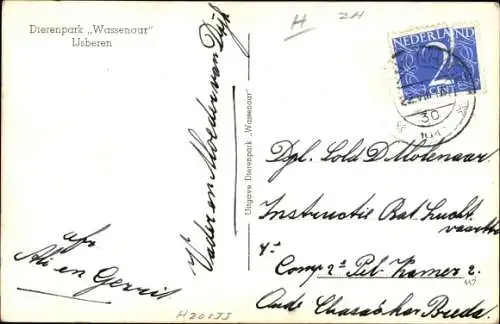 Dierenpark „Wassenaar"
IJsberen
H
ZH
NEDERLAND
2
30
Vader en Moeder van Dijk
afz.
Ali en Gerrit
Uitgave Dierenpark „Wassenaar"
Dpl. Sold D Molenaar
Instructie Bat. Lucht
vaart
Comp 2e Pel. Kamer 2.
117
Oude Chassé kar Breda.
H20155